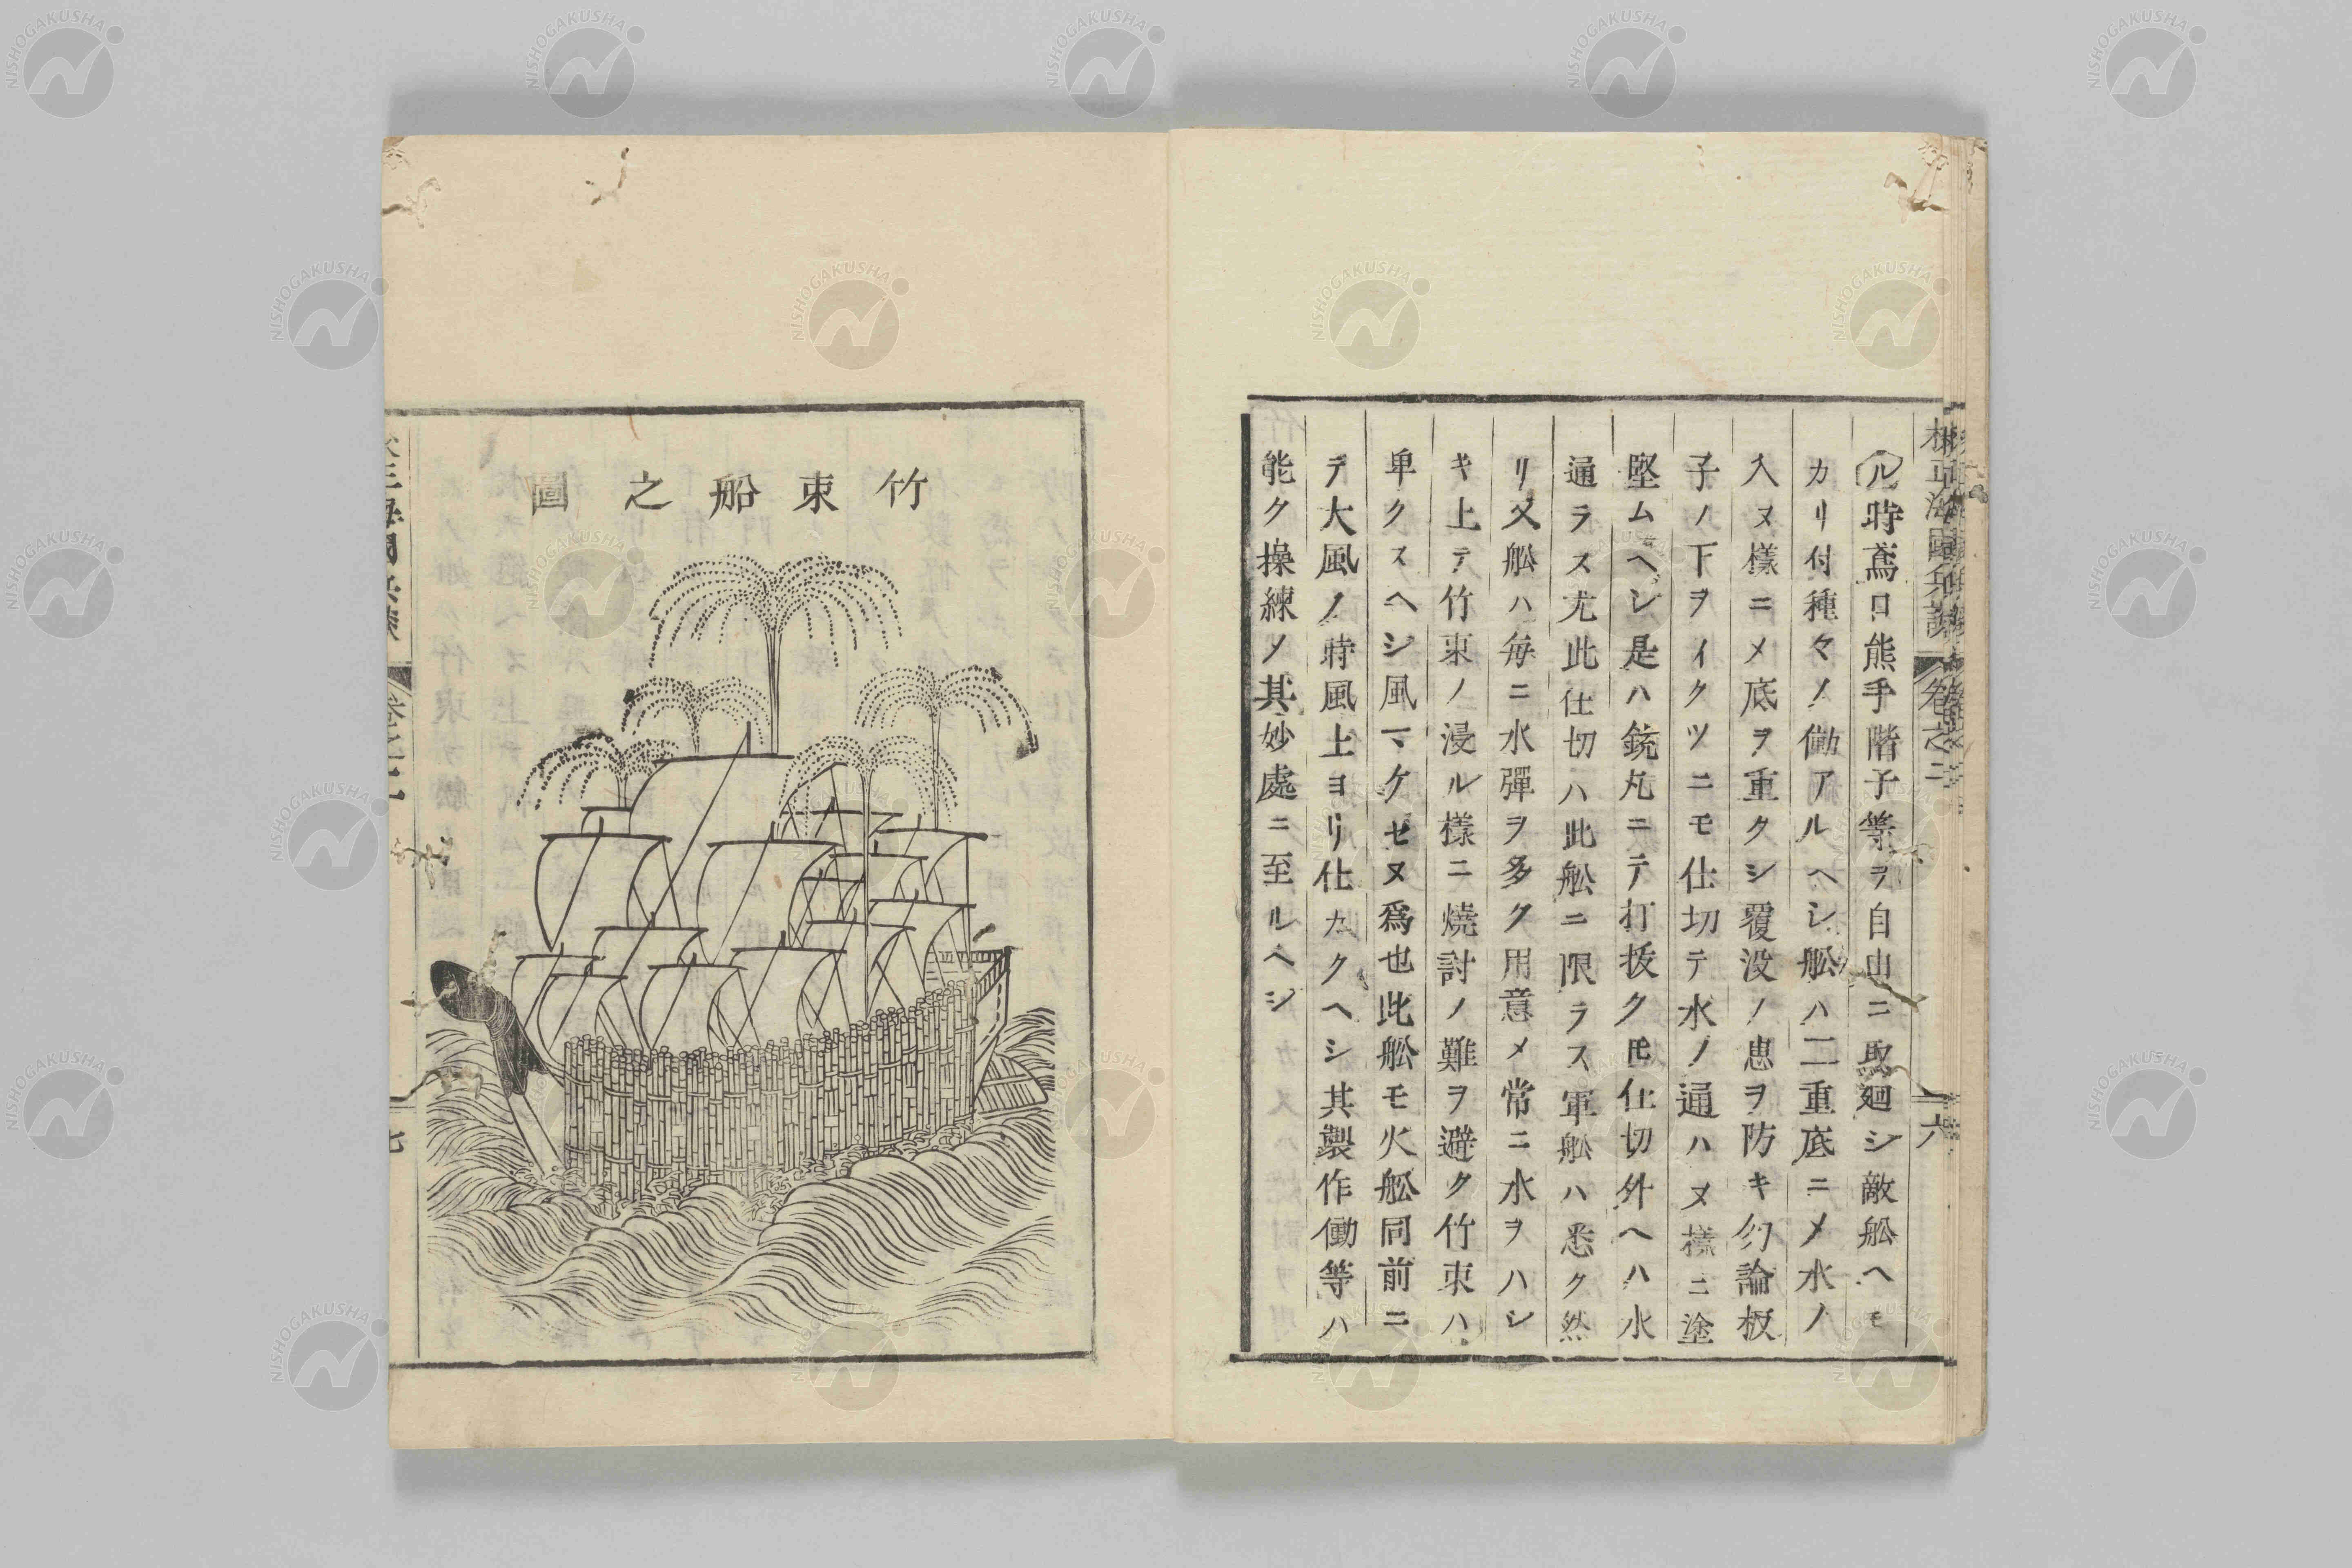 ル時鳶口熊手階子等ヲ自由ニ取廻シ敵舩ヘモ
カリ付種々ノ働アルヘシ舩ハ二重底ニメ水ノ
入ヌ樣ニメ底ヲ重クシ覆没ノ患ヲ防キ勿論板
子ノ下ヲイクツニモ仕切テ水ノ通ハヌ樣ニ塗
堅ムヘシ是ハ銃丸ニテ打抜クモ仕切外ヘハ水
通ラス尤此仕切ハ此舩ニ限ラス軍舩ハ悉ク然
リ又舩ハ毎ニ水彈ヲ多ク用意メ常ニ水ヲハシ
キ上テ竹束ノ浸ル樣ニ燒討ノ難ヲ避ク竹束ハ
卑クスヘシ風マケセヌ爲也此舩モ火舩同前ニ
テ大風ノ時風上ヨリ仕カクヘシ其製作働等ハ
能ク操練ノ其妙處ニ至ルヘシ
卷之二
六
竹束船之圖
七
NISHOGAKUSHA